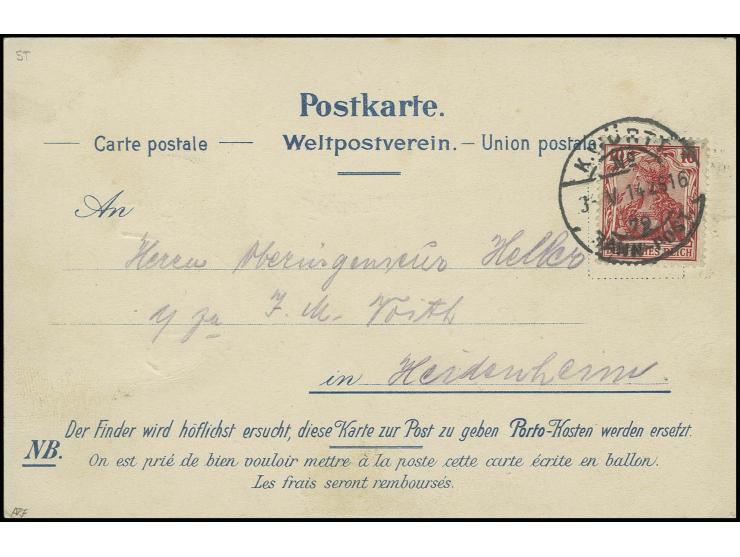 ST
Postkarte.
Carte postale — Weltpostverein. — Union postale
K. WÜRTT.
No
10
3. V. 14 2816
72
BAHNPOST
REICH
An
Herrn Oberingenieur Helko
J. M. Voith
in Heidenheim
NB. Der Finder wird höflichst ersucht, diese Karte zur Post zu geben Porto-Kosten werden ersetzt.
On est prié de bien vouloir mettre à la poste cette carte écrite en ballon.
Les frais seront remboursés.